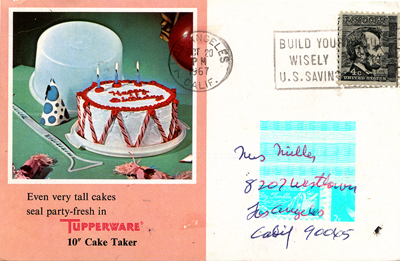 Happy
Birthday
Even very tall cakes
seal party-fresh in
TUPPERWARE®
10" Cake Taker
LOS ANGELES
OCT 23
PM
1967
CALIF.
BUILD YOUR
WISELY
U.S. SAVINGS
4c
UNITED STATES
Mrs Miller
8202 Westlawn
Los Angeles
Calif 90045